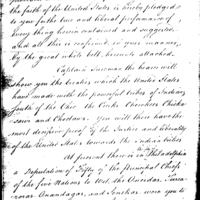 the faith of the United States is hereby pledged
to you for the true and liberal performance of
every thing herein contained and suggested.
And all this is confirmed, in your manner,
By the great white belt, hereunto attached.
Captain the bearer will
show you the treaties, which the United States
have made with the powerful tribes of Indians,
South of the Ohio the Creeks Cherokees Chicka-
saws and Choctaws. You will there have the
most decisive proof of the Justice and liberality
of the United States towards the Indian tribes
At present there is in Philadelphia
a Deputation of Fifty of the Principal Chiefs
of the five Nations to Wit, the Oneidas, Tusca-
roras Onandagas, and Senekas were you to